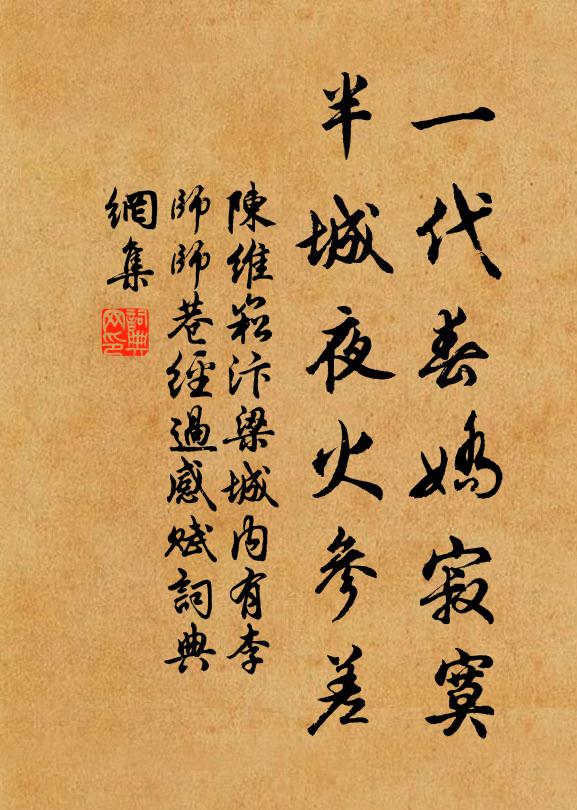 一代春嬌寂寞
半城夜火參差
陳維崧汴梁城內有李
師師巷經過感賦詞典
網集
詞典
文印